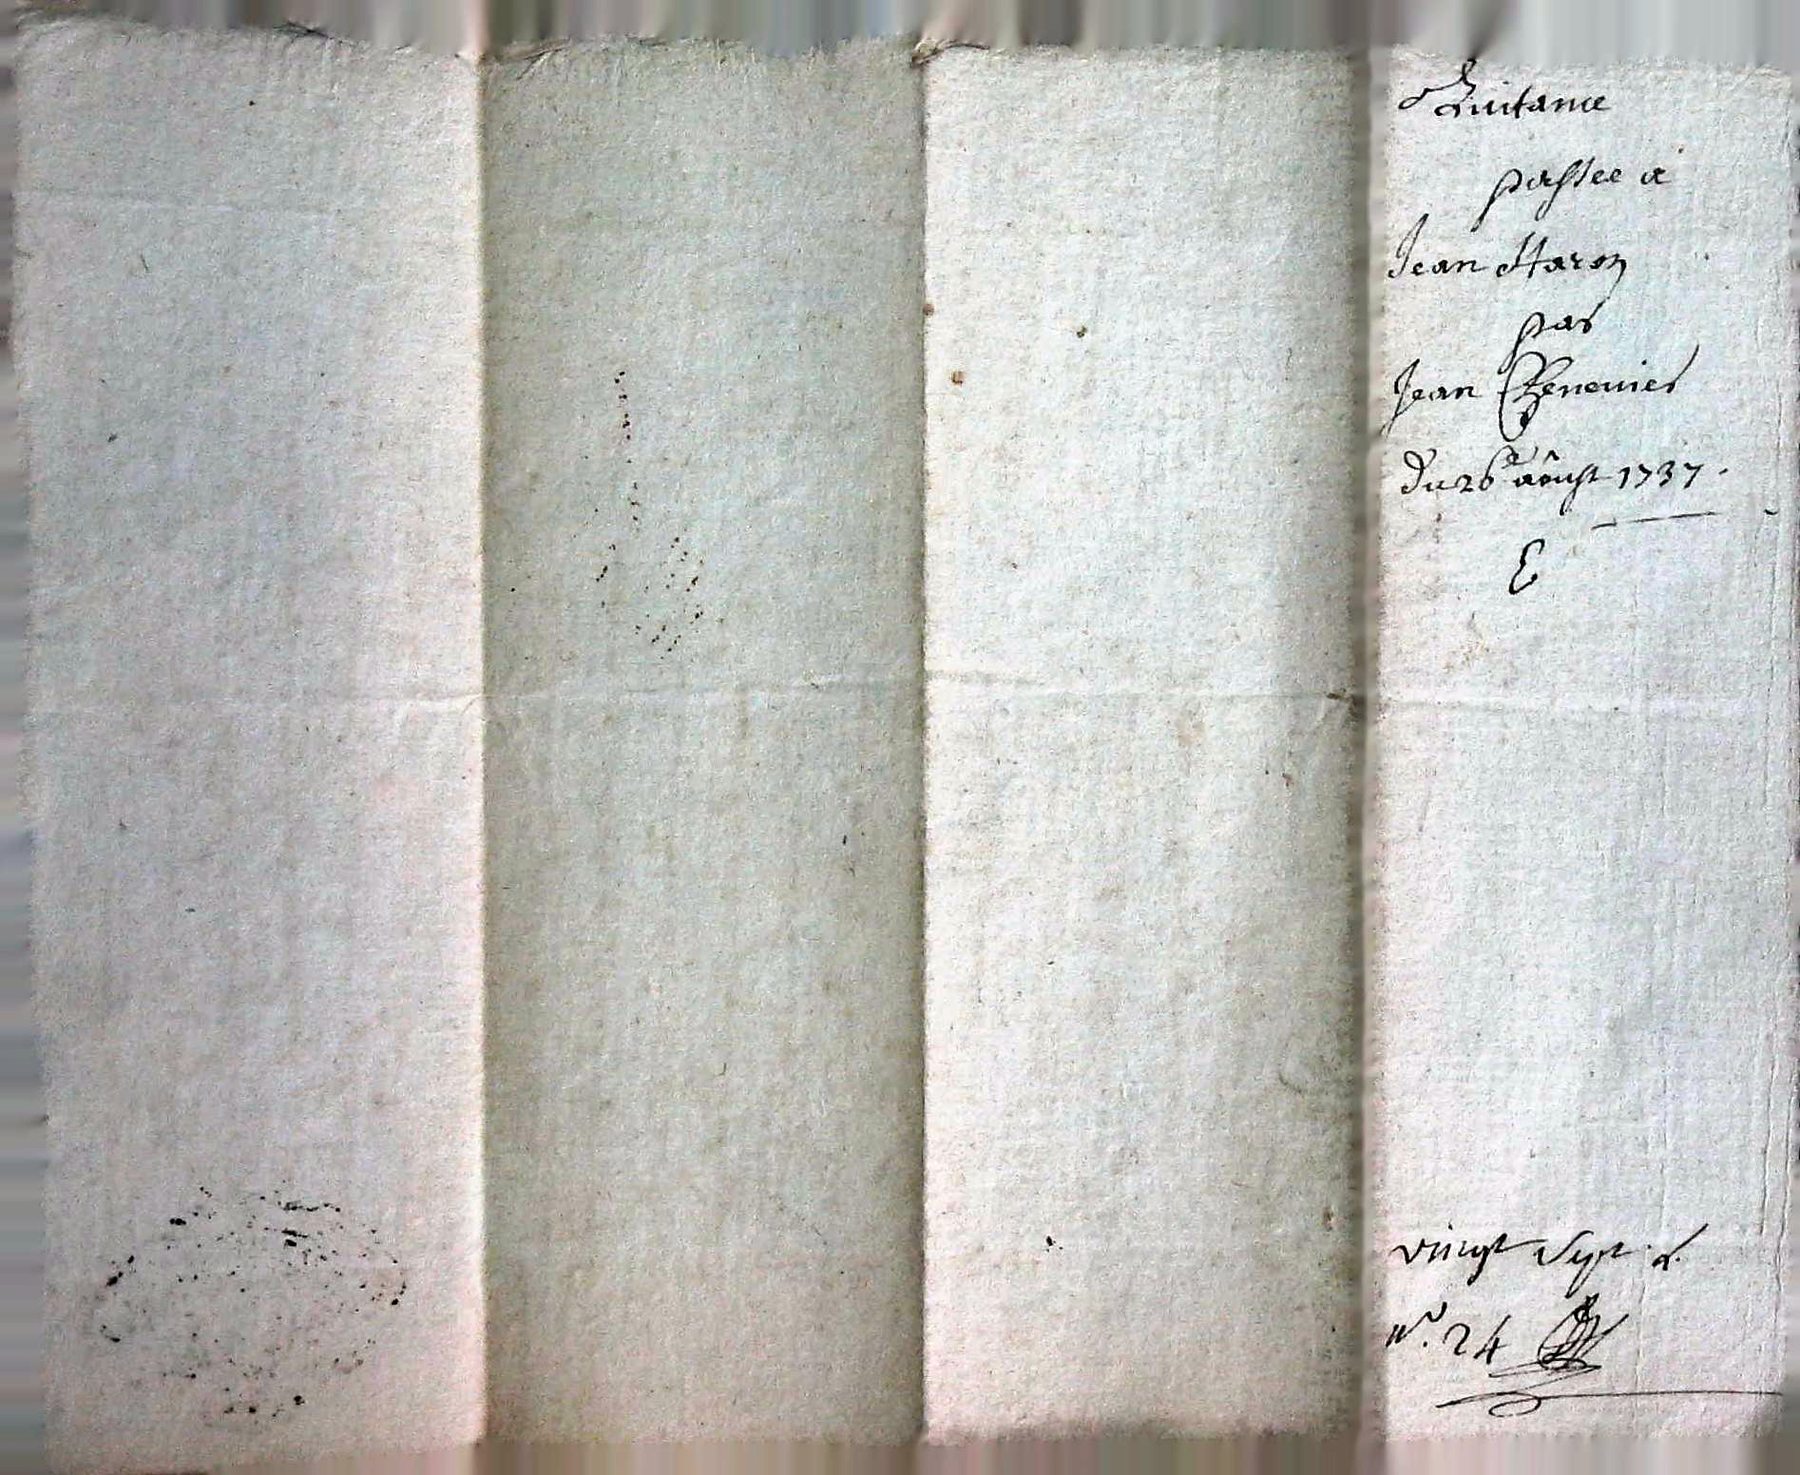 Quitance
passée a
Jean Haron
par
Jean
du 26e aôust 1737.
E
vingt Sept
n°. 24